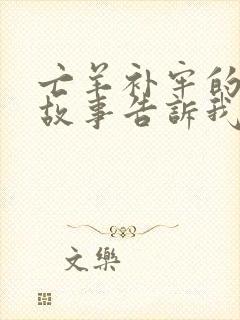 亡羊补牢的
故事告訴我
文樂